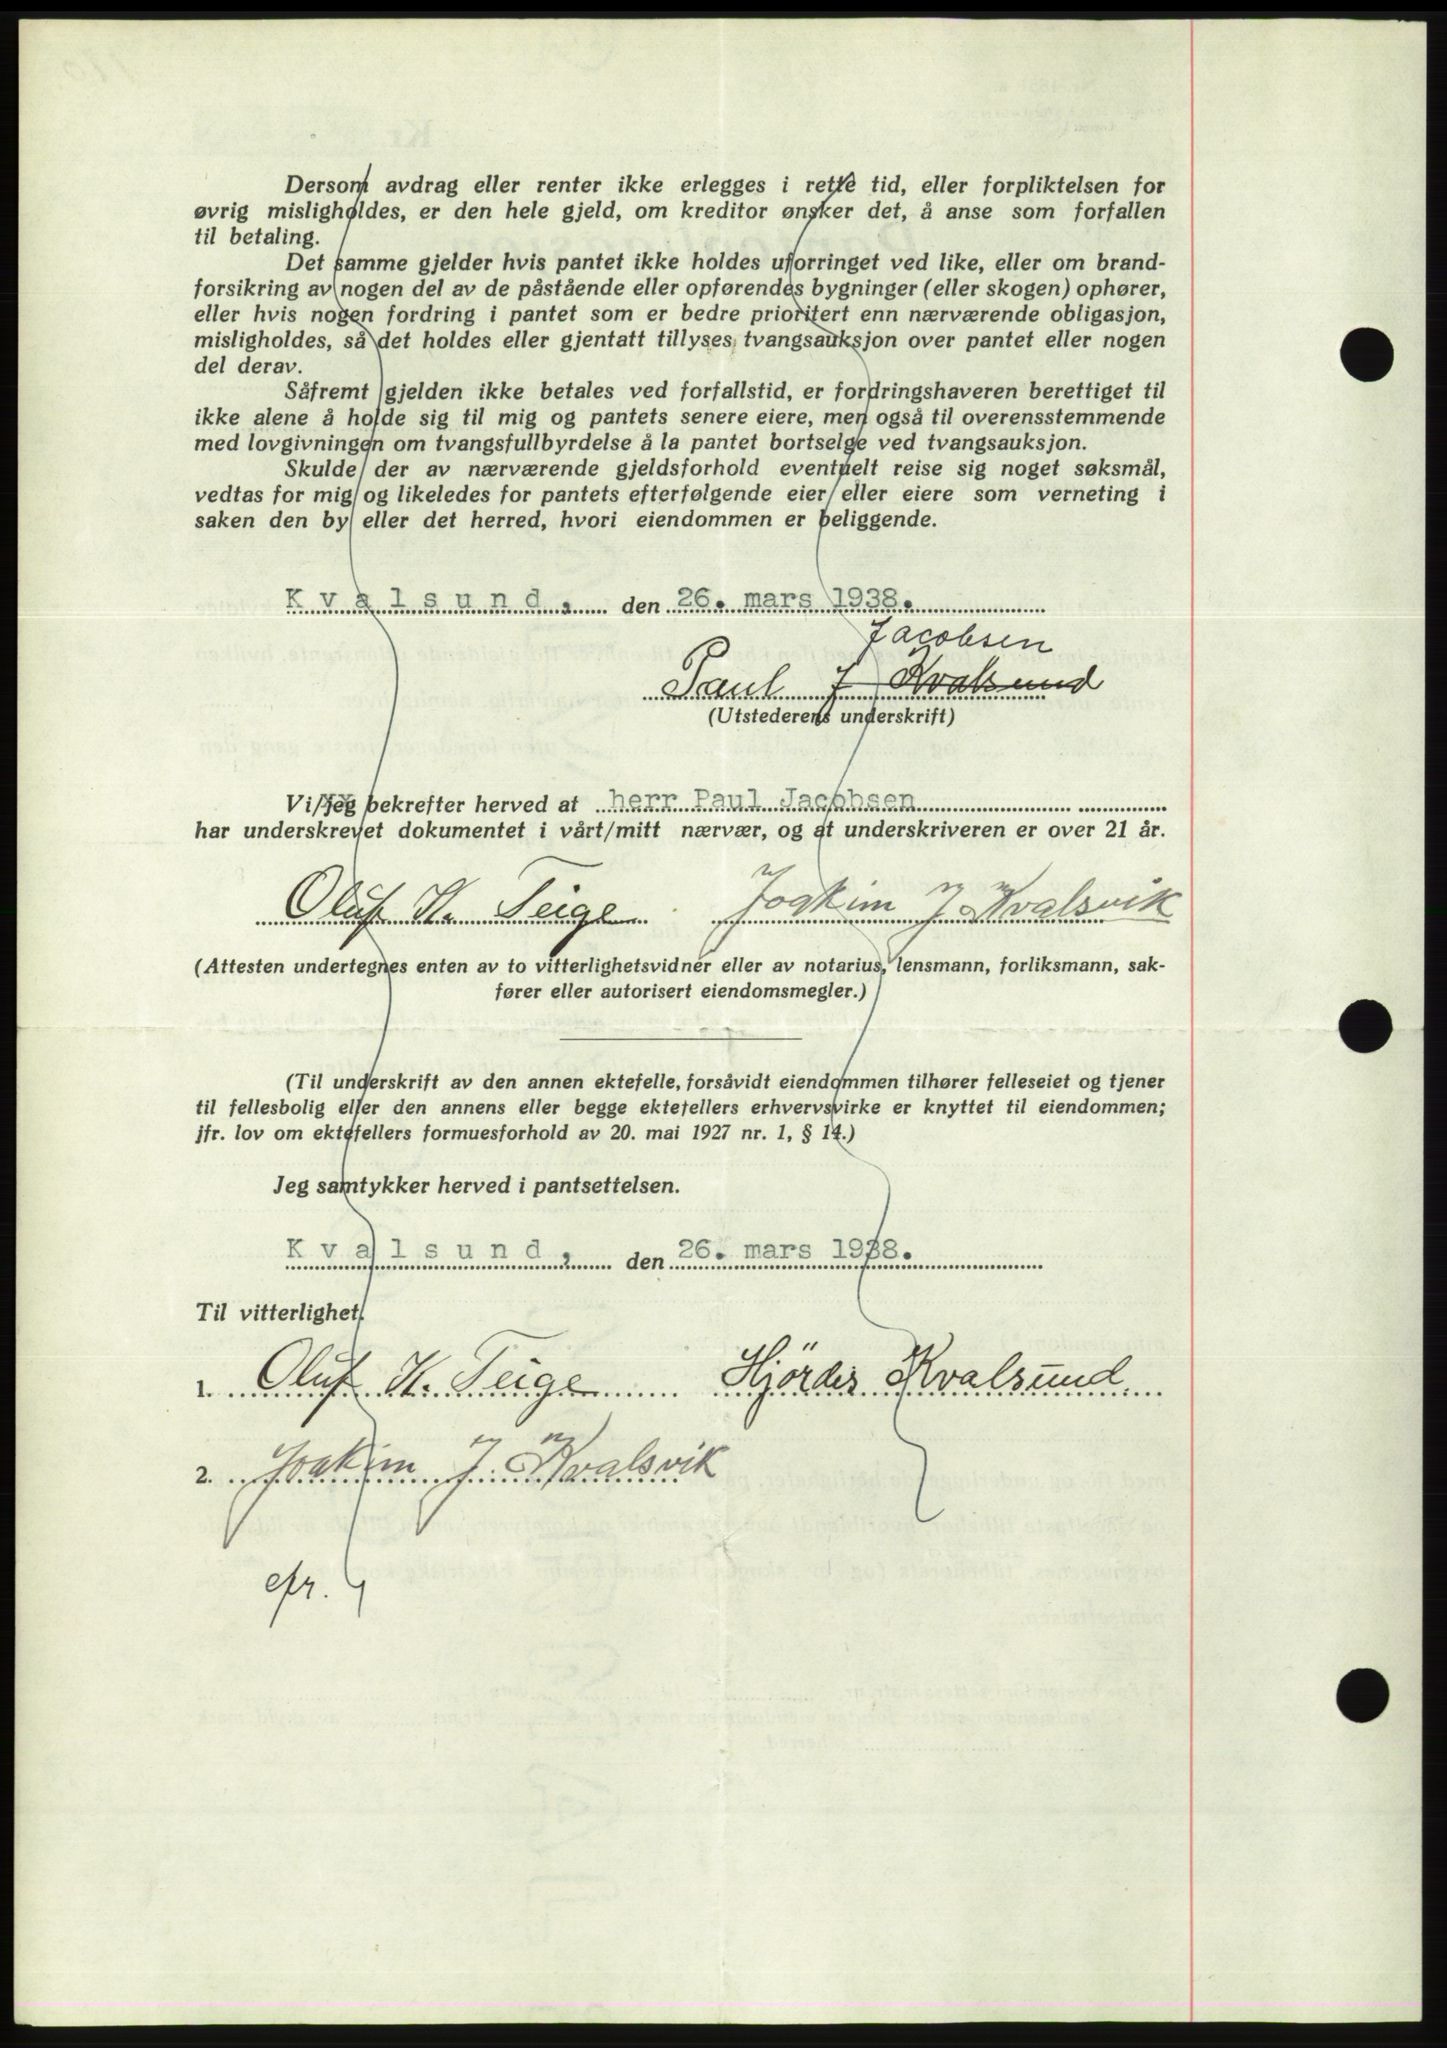 Dersom avdrag eller renter ikke erlegges i rette tid, eller forpliktelsen for
øvrig misligholdes, er den hele gjeld, om kreditor ønsker det, å anse som forfallen
til betaling.
Det samme gjelder hvis pantet ikke holdes uforringet ved like, eller om brand-
forsikring av nogen del av de påstående eller opførendes bygninger (eller skogen) ophører,
eller hvis nogen fordring i pantet som er bedre prioritert enn nærværende obligasjon,
misligholdes, så det holdes eller gjentatt tillyses tvangsauksjon over pantet eller nogen
del derav.
Såfremt gjelden ikke betales ved forfallstid, er fordringshaveren berettiget til
ikke alene å holde sig til mig og pantets senere eiere, men også til overensstemmende
med lovgivningen om tvangsfullbyrdelse å la pantet bortselge ved tvangsauksjon.
Skulde der av nærværende gjeldsforhold eventuelt reise sig noget søksmål,
vedtas for mig og likeledes for pantets efterfølgende eier eller eiere som verneting i
saken den by eller det herred, hvori eiendommen er beliggende.
Kvalsund, den 26. mars 1938.
Jacobsen
Paul J Kvalsund
(Utstederens underskrift)
Vi/jeg bekrefter herved at herr Paul Jacobsen
har underskrevet dokumentet i vårt/mitt nærvær, og at underskriveren er over 21 år.
Oluf K. Teige Joakim J Kvalsvik
(Attesten undertegnes enten av to vitterlighetsvidner eller av notarius, lensmann, forliksmann, sak-
fører eller autorisert eiendomsmegler.)
(Til underskrift av den annen ektefelle, forsåvidt eiendommen tilhører felleseiet og tjener
til fellesbolig eller den annens eller begge ektefellers erhvervsvirke er knyttet til eiendommen;
jfr. lov om ektefellers formuesforhold av 20. mai 1927 nr. 1, § 14.)
Jeg samtykker herved i pantsettelsen.
Kvalsund, den 26. mars 1938.
Til vitterlighet.
1. Oluf K. Teige Hjördis Kvalsund.
2. Joakim J. Kvalsvik
efr.